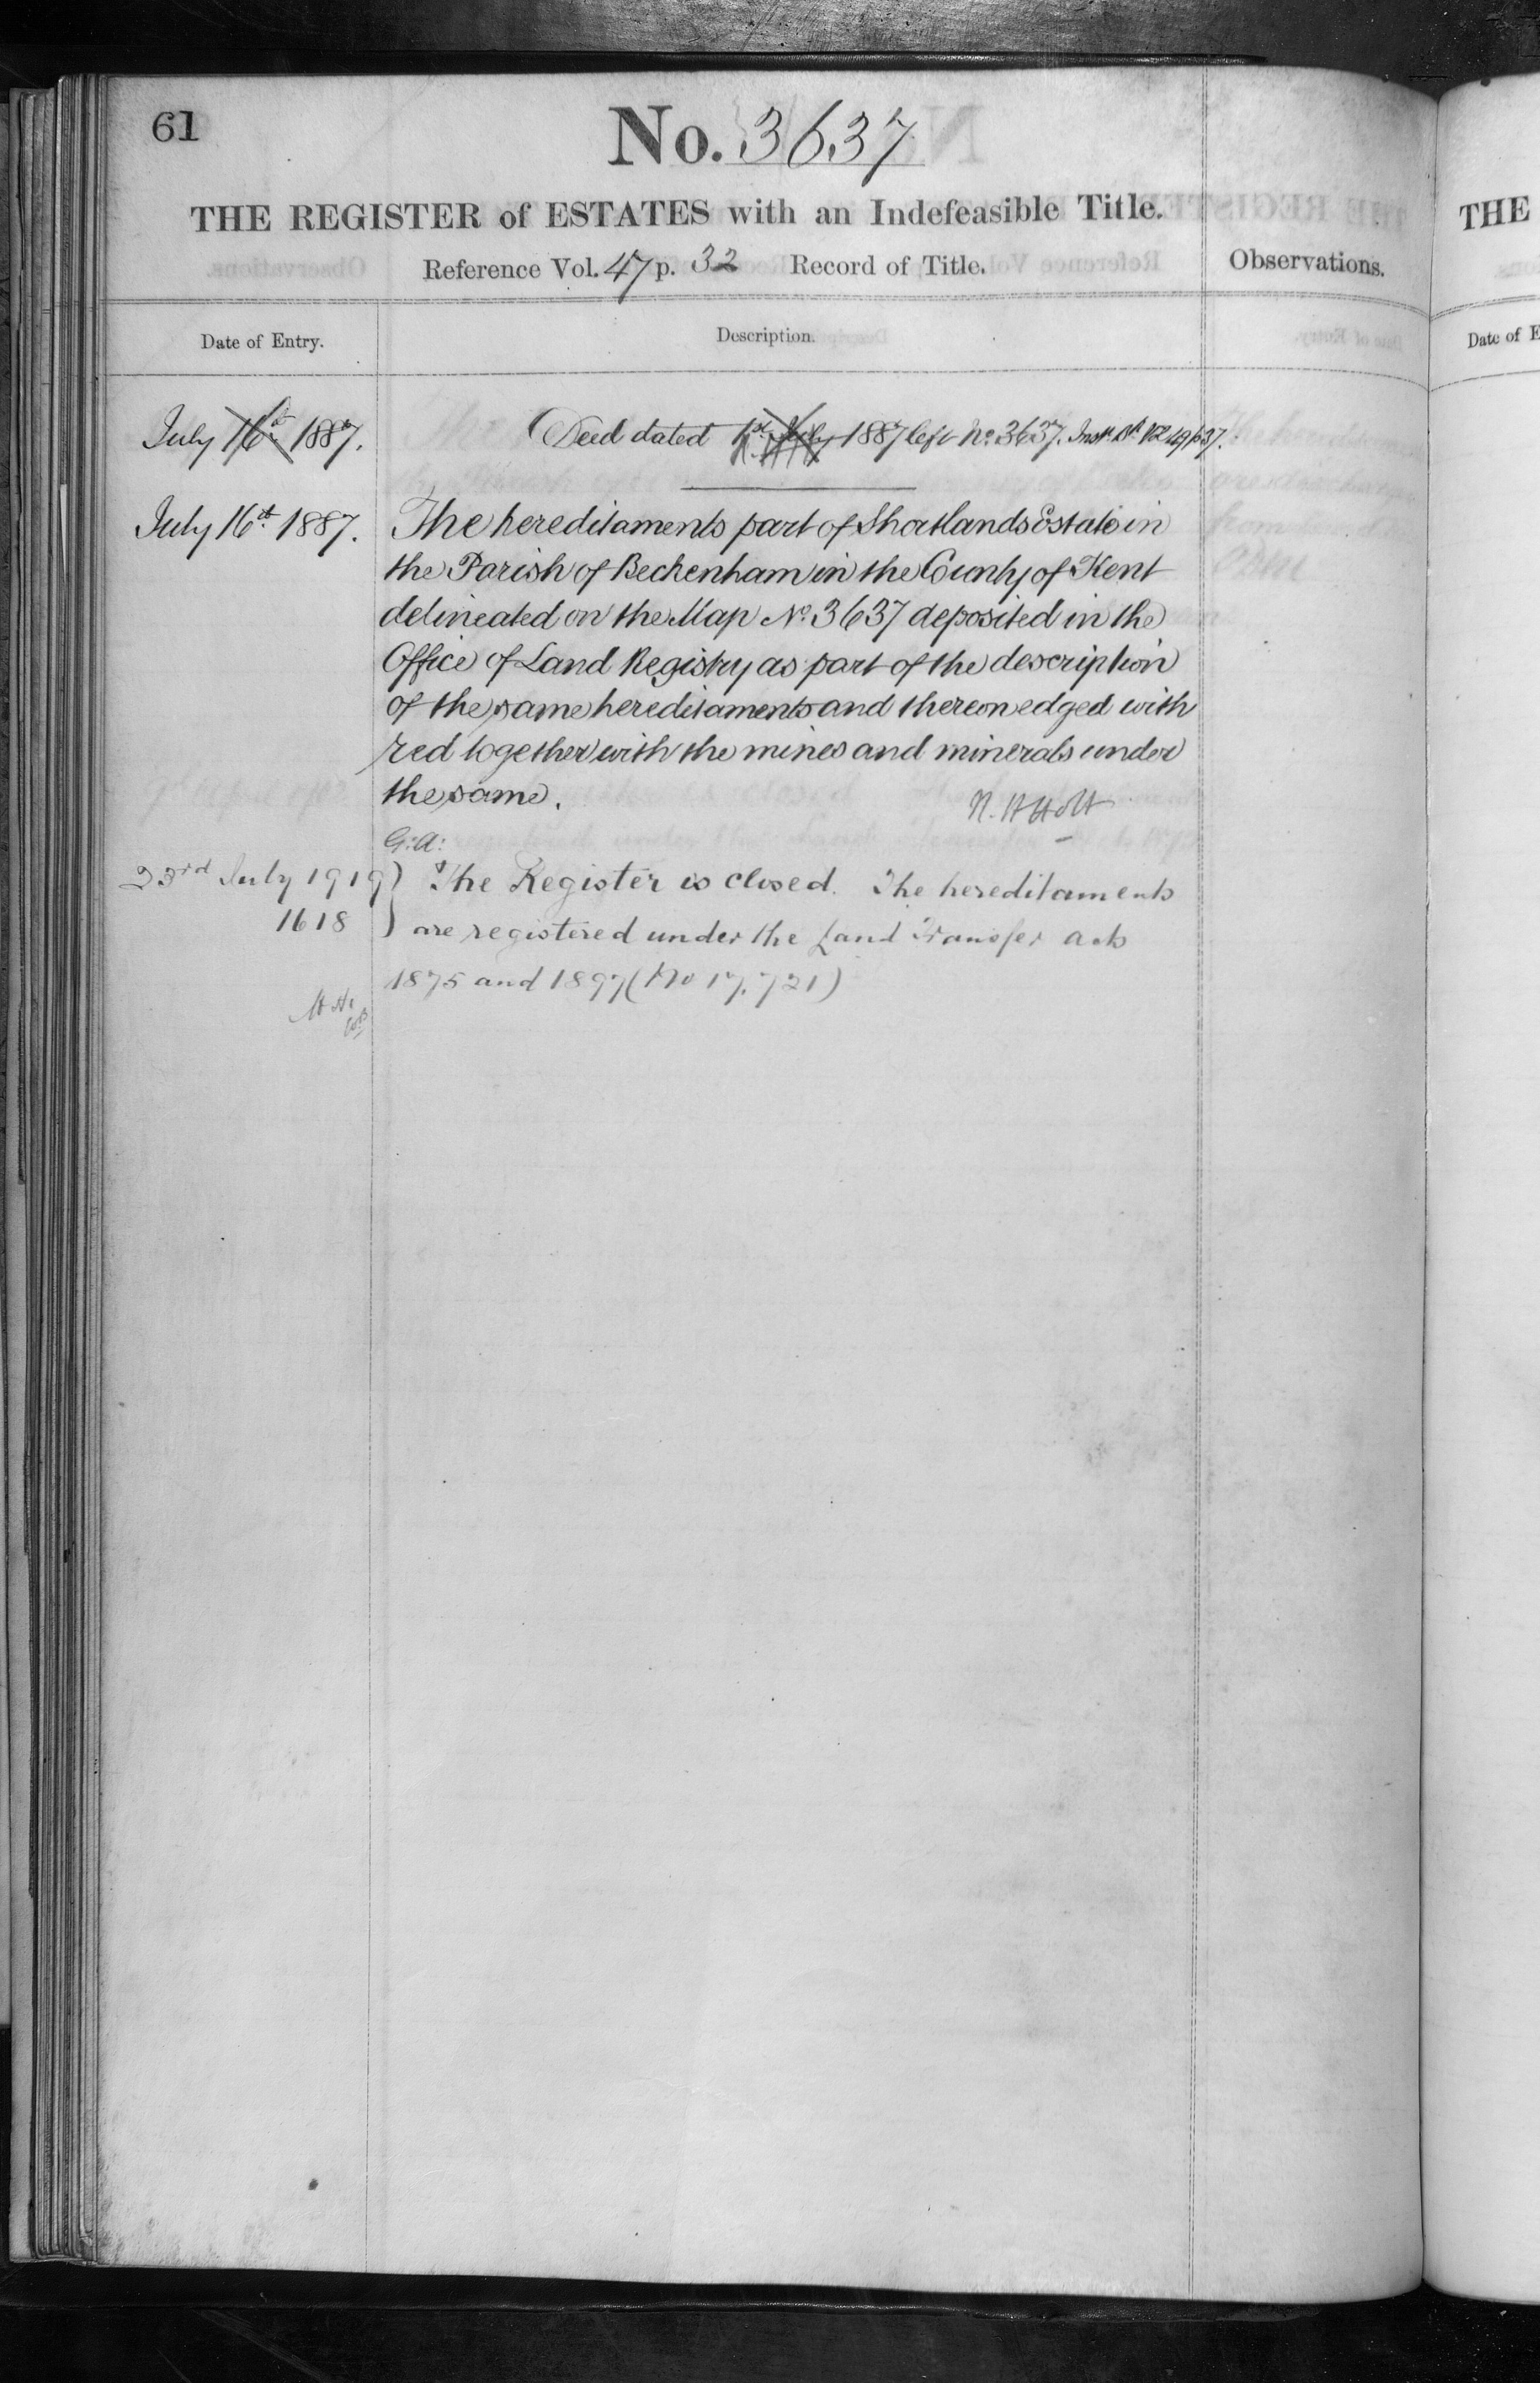 61
No. 3637
THE REGISTER of ESTATES with an Indefeasible Title.
Reference Vol. 47 p. 32 Record of Title.
Observations.
Date of Entry.
Description.
July 16th 1887.
Deed dated 1st July 1887 left No. 3637. Vol 49 p 37.
July 16th 1887.
The hereditaments part of Shortlands Estate in
the Parish of Beckenham in the County of Kent
delineated on the Map No. 3637 deposited in the
Office of Land Registry as part of the description
of the same hereditaments and thereon edged with
red together with the mines and minerals under
the same.
Holt
G: A:
23rd July 1919 } The Register is closed. The hereditaments
1618 } are registered under the Land Transfer Acts
1875 and 1897 (No 17,721)
THE
Date of E